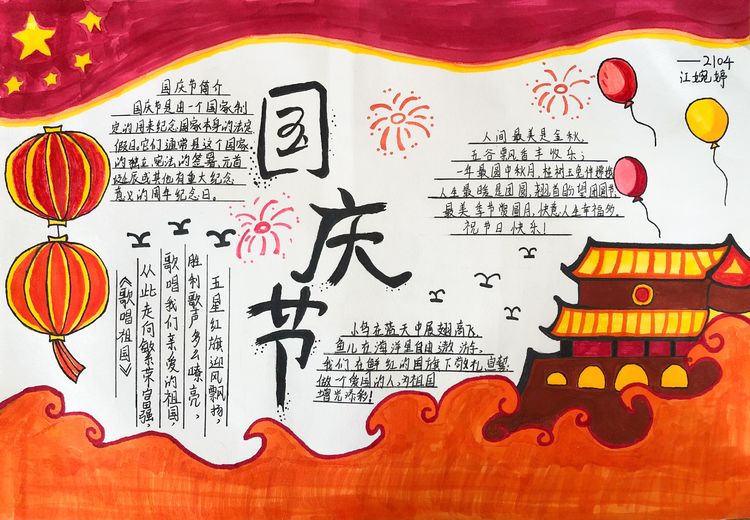 国庆节简介
国庆节是由一个国家制
定的用来纪念国家本身的法定
假日。它们通常是这个国家
的独立、宪法的签署、元首
诞辰或其他有重大纪念
意义的周年纪念日。
国庆节
——2104
江婉婷
人间最美是金秋,
五谷飘香丰收乐;
一年最圆中秋月,桂树玉兔伴嫦娥
人生最暖是团圆,翘首盼望团圆节
最美季节赏圆月,快意人生幸福多。
祝节日快乐!
五星红旗迎风飘扬,
胜利歌声多么嘹亮,
歌唱我们亲爱的祖国,
从此走向繁荣富强,
《歌唱祖国》
小鸟在蓝天中展翅高飞,
鱼儿在海洋里自由遨游。
我们在鲜红的国旗下敬礼宣誓:
做一个爱国的人,为祖国
增光添彩!